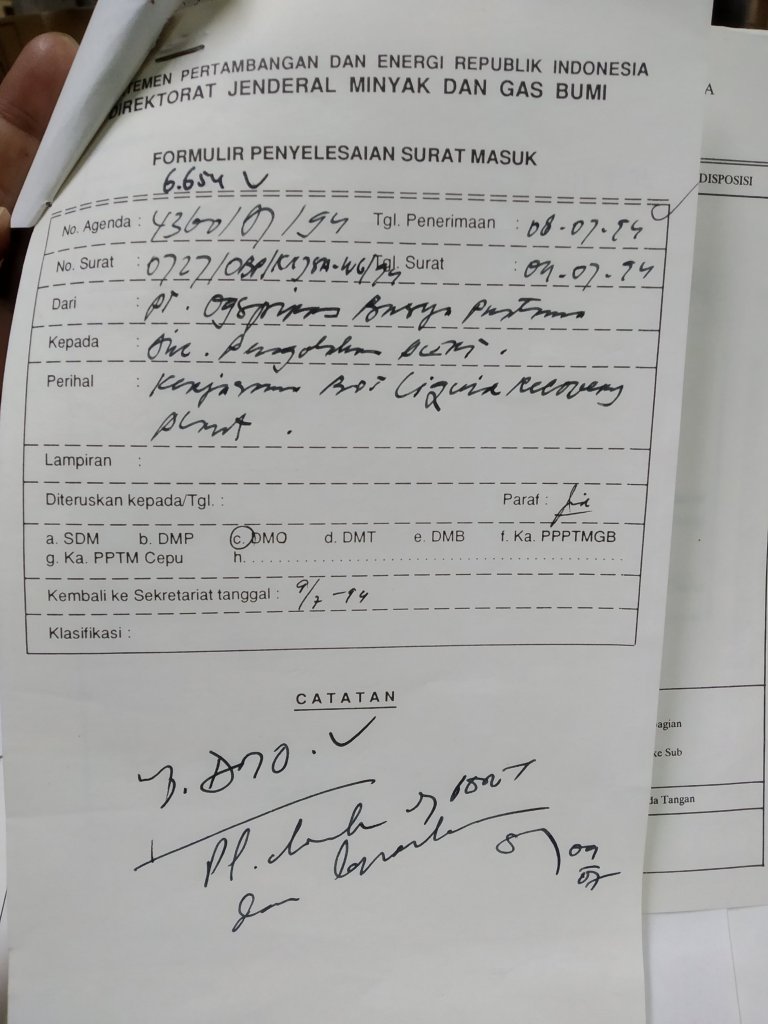 TEMEN PERTAMBANGAN DAN ENERGI REPUBLIK INDONESIA
DIREKTORAT JENDERAL MINYAK DAN GAS BUMI
FORMULIR PENYELESAIAN SURAT MASUK
6.654
No. Agenda : 4360/07/94 Tgl. Penerimaan : 08-07-94
No. Surat : 0727/OBP/ Tgl. Surat : 04-07-94
Dari : PT. Ogspiras
Kepada : Dir.
Perihal : Kerjasama BOT Liquid Recovery
Plant.
Lampiran :
Diteruskan kepada/Tgl. : Paraf :
a. SDM b. DMP c. DMO d. DMT e. DMB f. Ka. PPPTMGB
g. Ka. PPTM Cepu h.
Kembali ke Sekretariat tanggal : 9/7-94
Klasifikasi :
CATATAN
DMO.
dan
09/07
A
DISPOSISI
agian
ke Sub
da Tangan